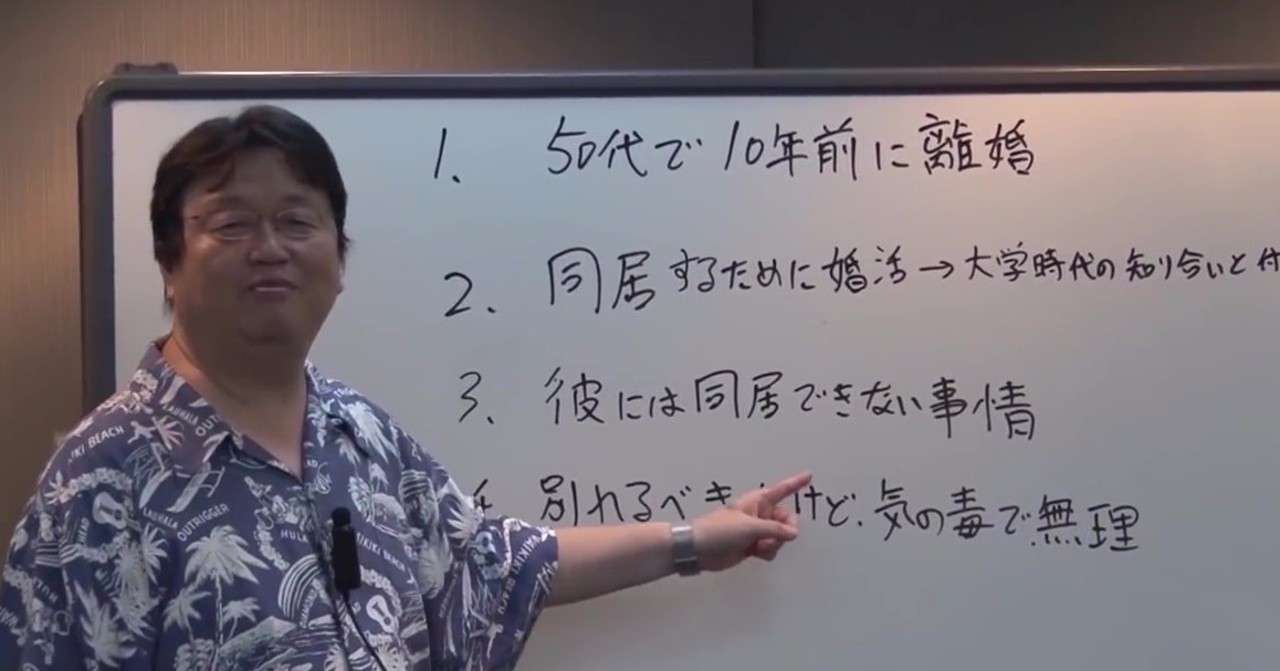 1. 50代で10年前に離婚
2. 同居するために婚活→大学時代の知り合いと付
3. 彼には同居できない事情
別れるべき けど、気の毒で無理
KIKI BEACH
OUTRIGGER
LAUHALA
HULA
WAIKIKI BEACH